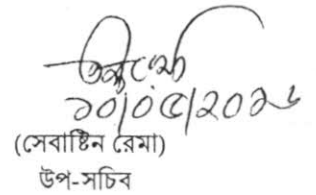 ১০/০৫/২০১৬
(সেবাষ্টিন রেমা)
উপ-সচিব